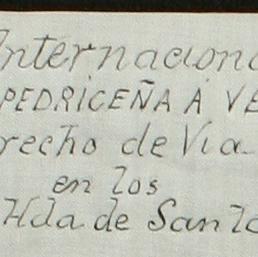 Internaciona
PEDRICEÑA A VE
recho de Via
en los
Hda de San Lo